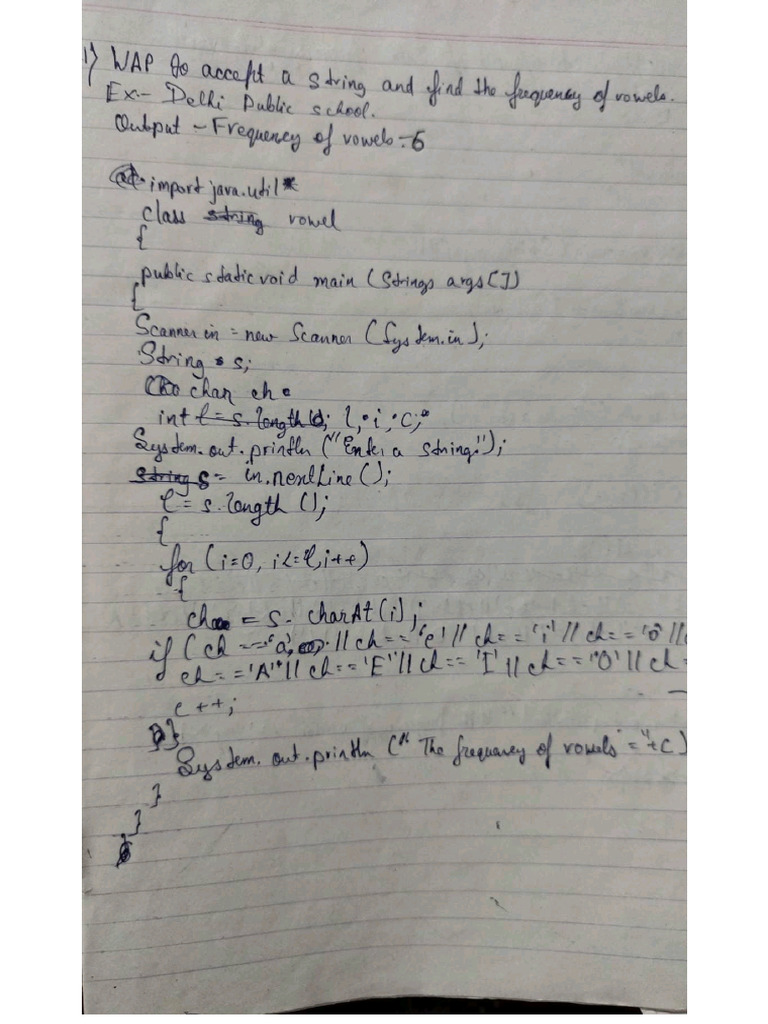 1) WAP to accept a string and find the frequency of vowels.
Ex:- Delhi Public school.
Output - Frequency of vowels - 6
import java.util*
class vowel
{
public static void main (Strings args[])
{
Scanner in = new Scanner (System.in);
String s;
char ch
int l, i, c;
System.out.println ("Enter a string");
s = in.nextLine ();
l = s.length ();
{
for (i=0, i<=l, i++)
{
ch = s. charAt(i);
if (ch == 'a' || ch == 'e' || ch == 'i' || ch == 'o' ||
ch == 'A' || ch == 'E' || ch == 'I' || ch == 'O' || ch =
c++;
}}
System.out.println (" The frequency of vowels = "+c)
}
}